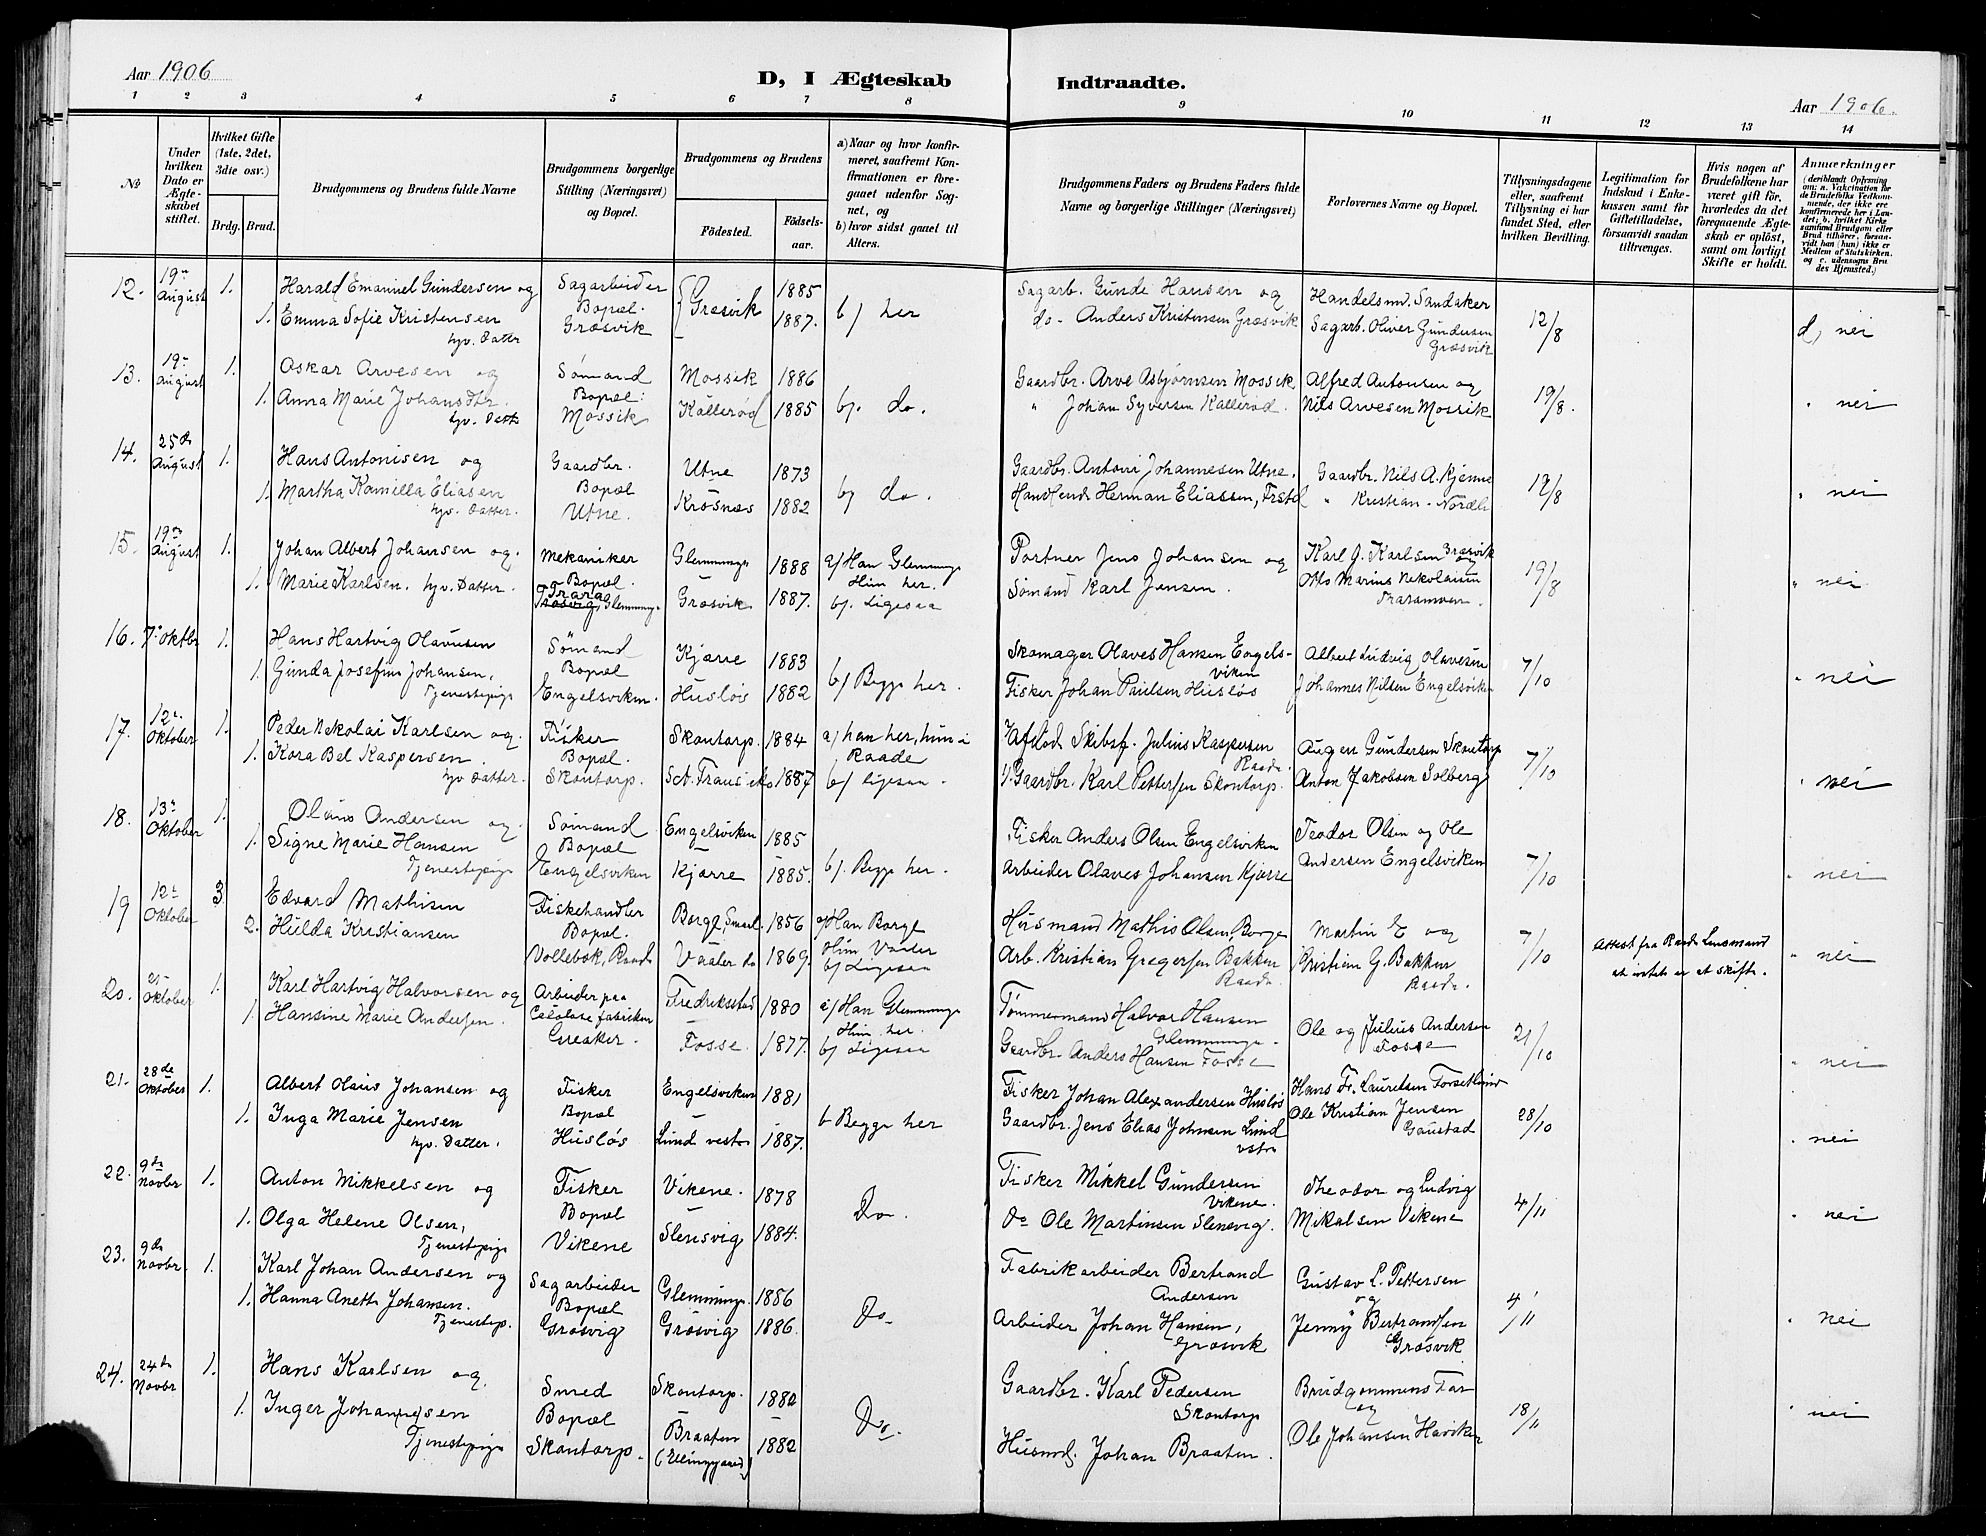 Aar 1906
D, I Ægteskab Indtraadte.
Aar 1906.
1 2 3 4 5 6 7 8 9 10 11 12 13 14
No
Under hvilken Dato er Ægteskabet stiftet.
Hvilket Gifte (1ste, 2det, 3die osv.)
Brdg. Brud.
Brudgommens og Brudens fulde Navne
Brudgommens borgerlige Stilling (Næringsvei) og Bopæl.
Brudgommens og Brudens
Födested.
Födselsaar.
a) Naar og hvor konfirmeret, saafremt Konfirmationen er foregaaet udenfor Sognet, og
b) hvor sidst gaaet til Alters.
Brudgommens Faders og Brudens Faders fulde Navne og borgerlige Stillinger (Næringsvei)
Forlovernes Navne og Bopæl.
Tillysningsdagene eller, saafremt Tillysning ei har fundet Sted, efter hvilken Bevilling.
Legitimation for Indskud i Enkekassen samt for Giftetilladelse, forsaavidt saadan tiltrænges.
Hvis nogen af Brudefolkene har været gift för, hvorledes da det foregaaende Ægteskab er oplöst, samt om lovligt Skifte er holdt.
Anmærkninger
(deriblandt Oplysning om: a. Vakcination for de Brudefolks Vedkommende, der ikke ere konfirmerede her i Landet; b. hvilket Kirkesamfund Brudgom eller Brud tilhörer, forsaavidt han (hun) ikke er Medlem af Statskirken, og c. udensogns Brudes Hjemsted.)
12. 19de August 1. Harald Emanuel Gundersen og Sagarbeider Græsvik 1885 b) her Sagarb. Gunde Hansen og Handelsm. Sandaker 12/8 d) nei
1. Emma Sofie Kristensen Bopæl. 1887. do - Anders Kristensen Græsvik Sagarb. Oliver Gundersen
hjv. Datter Græsvik Græsvik
13. 19de August 1. Oskar Arvesen og Sømand Mossik 1886 Gaardbr. Arve Asbjørnsen Mossik Alfred Antonsen og 19/8. nei
1. Anna Marie Johansdtr. Bopæl: Källerød 1885 b). do. " Johan Syversen Kallerød. Nils Arvesen Mossik
hjv. Datt Mossik
14. 25de August 1. Hans Antonisen og Gaardbr. Utne 1873 Gaardbr. Antoni Johannesen Utne. Gaardbr. Nils A. Kjenne 19/8 " nei
1. Martha Kamilla Eliasen Bopæl Krosnæs 1882 b) do. Handlende Herman Eliassen, " Kristian
hjv. Datter. Utne.
15. 19de August 1. Johan Albert Johansen og. Mekaniker Glemminge 1888 a) Han Glemminge Portner Jens Johansen og Karl J. Karlsen Græsvik og 19/8 " nei
1. Marie Karlsen. hjv. Datter. Bopæl. Græsvik 1887. Hun her. Sømand Karl Jensen. Otto Marius Nikolaisen
Trara Glemminge b). Ligesaa Traramoen.
16. 7de oktbr 1. Hans Hartvig Olavesen Sømand Kjærre 1883 Skomager Olaves Hansen Engelsviken Albert Ludvig Olavesen 7/10 " nei
1. Gunda Josefine Johansen, Bopæl Husløs 1882 b) Begge her. Fisker Johan Paulsen Husløs Johannes Nilsen Engelsviken
Tjenestepige Engelsviken.
17. 12te Oktober 1. Peder Nikolai Karlsen og. Fisker Skontorp. 1884 a) han her, hun i Raade Afdød Skibsf. Julius Kaspersen Raade. Augen Gundersen Skontorp 7/10 nei
1. Kora Bel Kaspersen. Bopæl. 1887 b) ligesaa. Gaardbr. Karl Petterssen Skontorp. Anton Jakobsen Solberg
hjv Datter. Skontorp.
18. 13de Oktober 1. Olaus Andersen og. Sømand Engelsviken 1885 Fisker Anders Olsen Engelsviken Teodor Olsen og Ole 7/10 nei
1. Signe Marie Hansen Bopæl Kjærre 1885. b). Begge her. Arbeider Olaves Johansen Kjærre Andersen Engelsviken
Tjenestepige Engelsviken
19 12te Oktober 3 Edvard Mathisen Fiskehandler Borge, Smaal. 1856 a) Han Borge Husmand Mathis Olsen, Borge Martin E og 7/10 Attest fra Raade Lensmand " nei
2. Hulda Kristiansen Bopæl. Vaaler do 1869. Hun Vaaler Arb. Kristian Gregersen Bakken Raade. Kristian G. Bakken Raade. at intet er at skifte.
Vollebæk, Raade b) Ligesaa
20. 21de Oktober 1. Karl Hartvig Halvorsen og Arbeider paa Fredriksstad 1880 a) Han Glemminge Tømmermand Halvor Hansen Glemminge - Ole og Julius Andersen 21/10 " nei
1. Hansine Marie Andersen. Celulosefabriken Fosse. 1877. Hun her. Gaardbr. Anders Hansen Fosse Fosse
Greaker. b) Ligesaa
21. 28de Oktober 1. Albert Olaus Johansen og Fisker Engelsviken 1881 Fisker Johan Alexandersen Husløs Hans Fr. Lauritsen 28/10 nei
1. Inga Marie Jensen Bopæl Lund vestre 1887. b Begge her Gaardbr. Jens Elias Johnsen Lund vstre Ole Kristian Jensen
hjv. Datter. Husløs Gaustad
22. 9de Novbr 1. Anton Mikkelsen og Fisker Vikene. 1878 Do. Fisker Mikkel Gundersen Vikene. Theodor og Ludvig 4/11 nei
1. Olga Helene Olsen, Bopæl Slensvig 1884. Do Ole Martinsen Slensvig. Mikalsen Vikene
Tjenestepige Vikene
23. 9de Novbr. 1. Karl Johan Andersen og Sagarbeider Glemminge. 1886 Do. Fabrikarbeider Bertrand Andersen Gustav L. Pettersen og 4/11 nei
1. Hanna Anette Johansen. Bopæl Græsvig 1886. Arbeider Johan Hansen, Græsvik Jenny Bertrandsen
Tjenestep. Græsvig Græsvik
24. 24de Novbr 1. Hans Karlsen og. Smed Skontorp. 1882 Do. Gaardbr. Karl Pedersen Skontorp Brudgommens Far og 18/11 nei
1. Inger Johannesen Bopæl Braaten 1882 Husmd. Johan Braaten. Ole Johansen Haviken
Tjenestepige Skontorp.